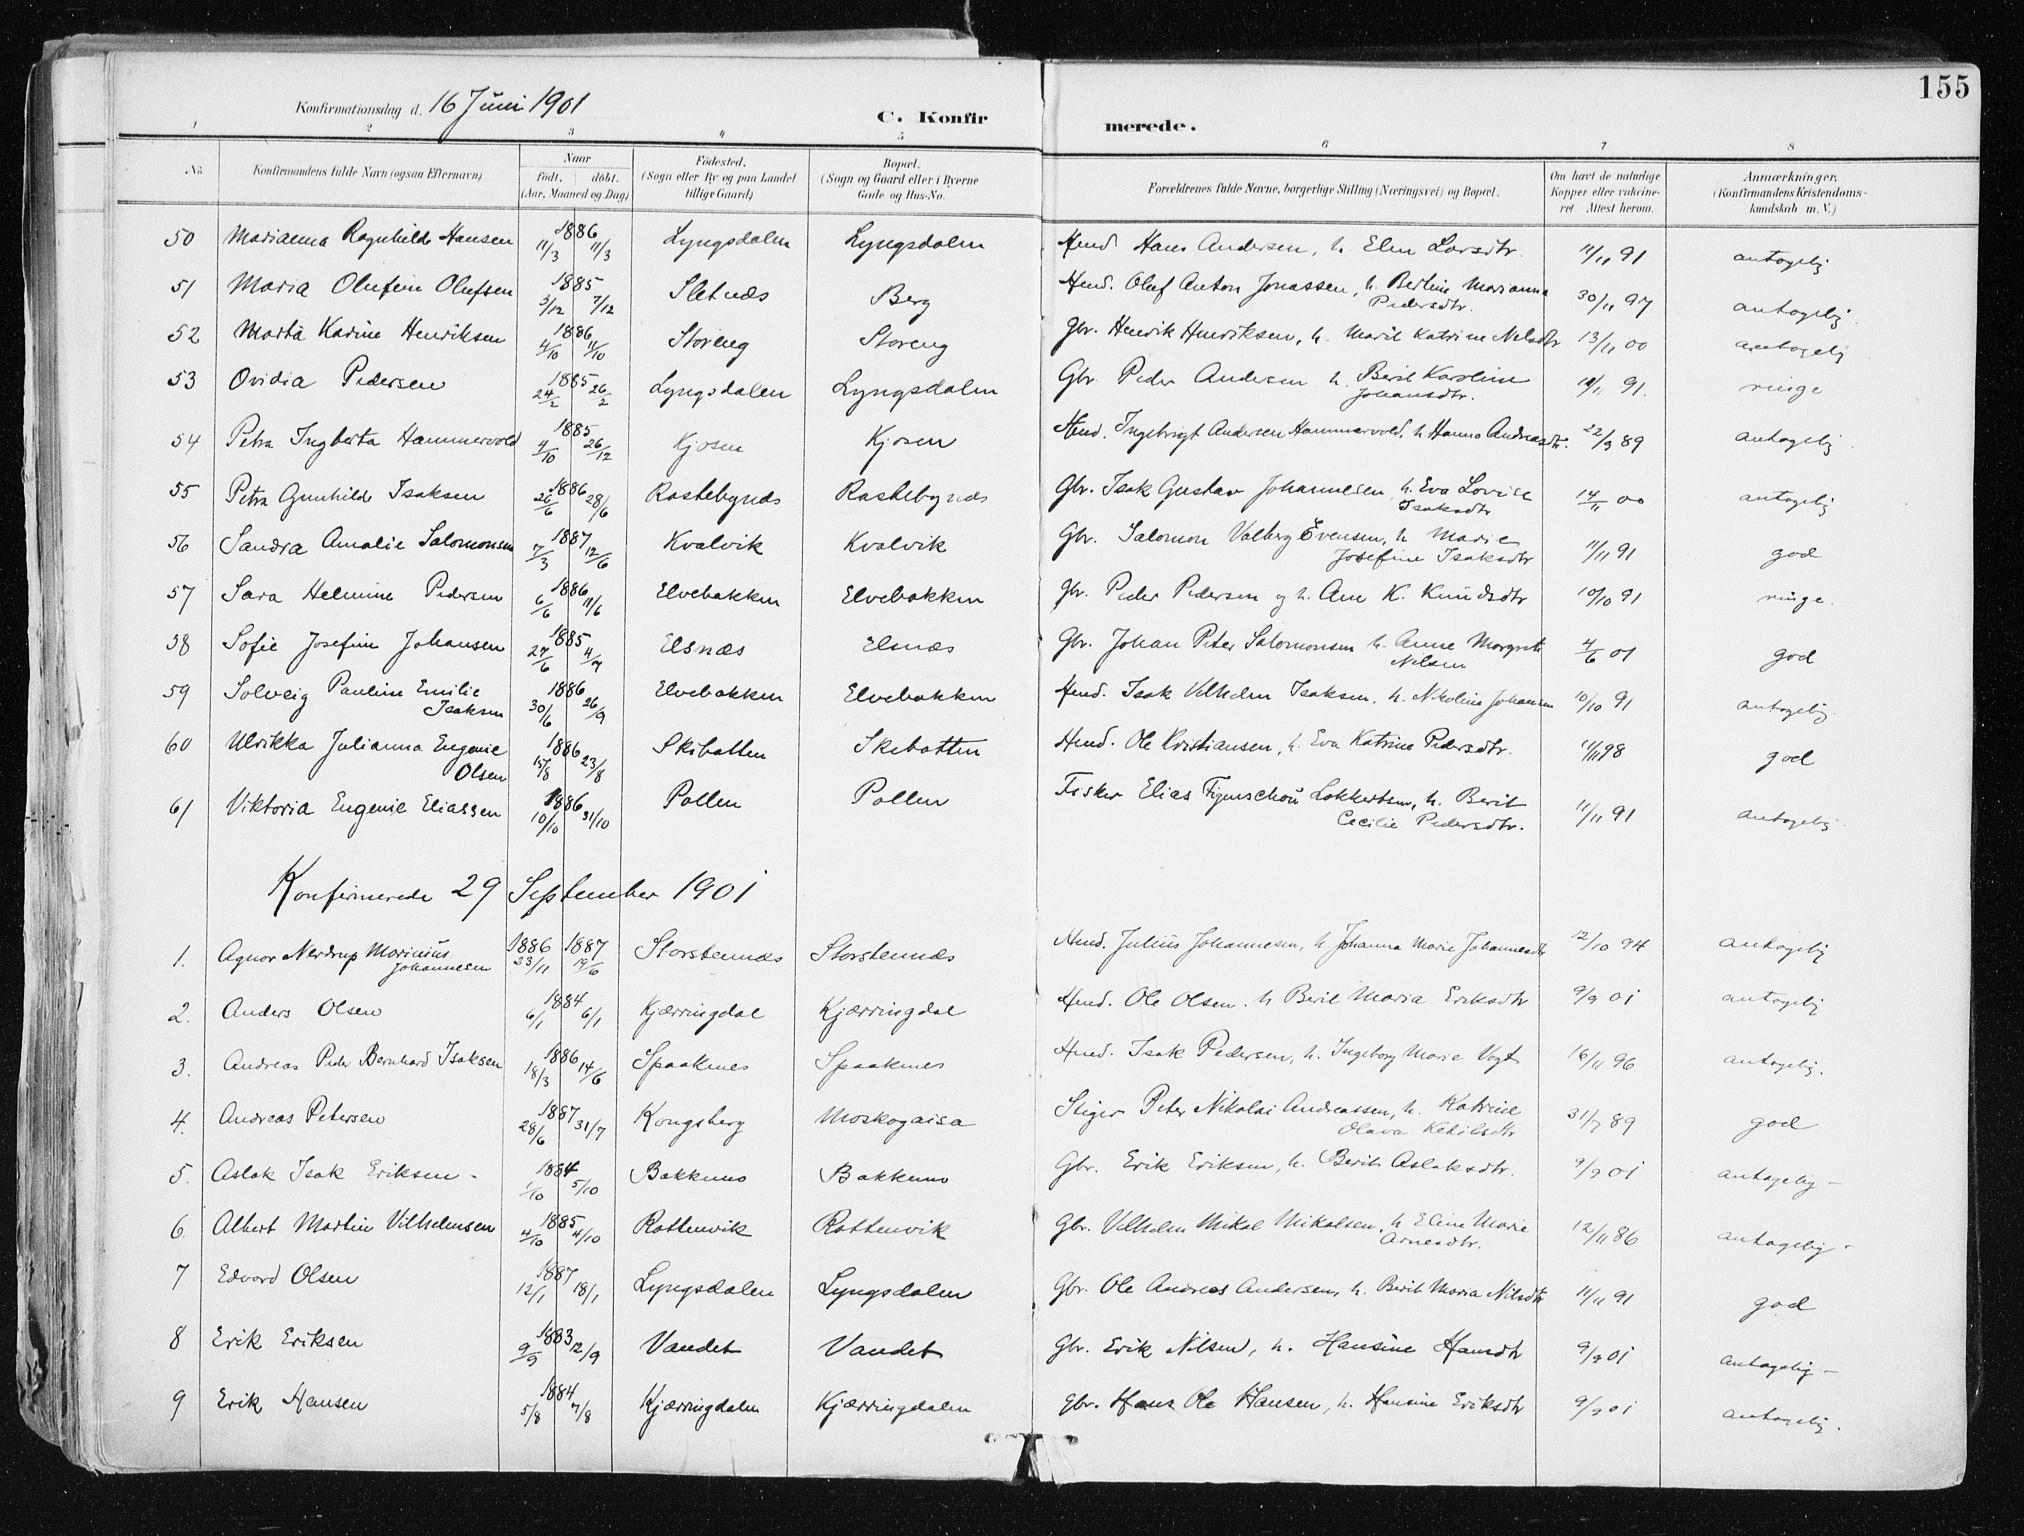 155
Konfirmationsdag d. 16 Juni 1901
C. Konfirmerede.
1 2 3 4 5 6 7 8
No. Konfirmandens fulde Navn (ogsaa Efternavn) Naar födt. döbt. (Aar, Maaned og Dag) Födested. (Sogn eller By og paa Landet tillige Gaard) Bopæl. (Sogn og Gaard eller i Byerne Gade og Hus-No. Forældrenes fulde Navne, borgerlige Stilling (Næringsvei) og Bopæl. Om havt de naturlige Kopper eller vaccineret Attest herom. Anmærkninger. (Konfirmandens Kristendomskundskab m. V.)
50 Marianna Ragnhild Hansen 1886 11/3 11/3 Lyngsdalen Lyngsdalen Hmd. Hans Andersen, h. Elen Larsdtr. 11/11 91 antagelig
51 Maria Olufine Olufsen 1885 3/12 7/12 Sletnæs Berg Hmd. Oluf Anton Jonassen, h. Berline Marianna
Pedersdtr. 30/11 97 antagelig.
52 Marta Karine Henriksen 1886 4/10 11/10 Storeng Storeng Gbr. Henrik Henriksen, h. Marit Katrine Nilsdtr 13/11 00 antagelig
53 Ovidia Pedersen 1885 24/2 26/2 Lyngsdalen Lyngsdalen Gbr Peder Andersen h. Berit Karoline
Johansdtr. 11/11 91. ringe
54 Petra Ingberta Hammervold 1885 4/10 26/12 Kjosen Kjosen Hmd. Ingebrigt Andersen Hammervold, h Hanna Andreasdtr. 22/9 89 antagelig
55 Petra Gunhild Isaksen 1886 26/6 28/6 Rastebynæs Rastebynæs Gbr. Isak Gustav Johannesen, h. Eva Lovise
Isaksdtr 14/11 00 antagelig
56 Sandra Amalie Salomonsen 1887 7/3 12/6 Kvalvik Kvalvik Gbr. Salomon Valberg Evensen, h Marie
Josefine Isaksdtr 11/11 91 god
57 Sara Helmine Pedersen 1886 6/6 11/6 Elvebakken Elvebakken Gbr. Peder Pedersen og h. Ane K. Knudsdtr 10/10 91 ringe.
58 Sofie Josefine Johansen 1885 27/6 4/7 Elsnæs Elsnæs Gbr. Johan Peter Salomonsen h. Anne Margrete
Nilsen 4/6 01 god
59 Solveig Pauline Emilie
Isaksen 1886 30/6 26/9 Elvebakken Elvebakken Hmd. Isak Vilhelm Isaksen, h. Nikoline Johansen 10/10 91 antagelig.
60 Ulrikka Julianna Eugenie
Olsen 1886 15/8 23/8 Skibotten Skibotten Hmd. Ole Kristiansen, h. Eva Katrine Pedersdtr. 11/11 98 god
61 Viktoria Eugenie Eliassen 1886 10/10 31/10 Pollen Pollen Fisker Elias Figenschou Lokkertsen, h. Berit
Cecilie Pedersdtr. 11/11 91 antagelig.
Konfirmerede 29 September 1901
1. Agnor Nerdrup Marinius
Johannesen 1886 23/11 1887 19/6 Storstennæs Storstennæs Hmd. Julius Johannesen, h Johanna Marie Johannesdtr 12/10 94 antagelig
2. Anders Olsen 1884 6/1 6/1 Kjærringdal Kjærringdal Hmd. Ole Olsen. h Berit Maria Eriksdtr 9/9 01 antagelig
3. Andreas Peder Bernhard Isaksen 1886 18/3 14/6 Spaaknes Spaaknes Hmd. Isak Pedersen, h. Ingeborg Marie Vogt 16/11 96 antagelig.
4. Andreas Petersen 1887 28/6 31/7 Kongsberg Moskogaisa Stiger Peter Nikolai Andreassen, h. Katrine
Olava Ketilsdtr 31/7 89 god
5. Aslak Isak Eriksen - 1884 1/10 5/10 Bakkens Bakkens Gbr. Erik Eriksen, h. Berit Aslaksdtr. 9/9 01 antagelig -
6. Albert Martin Vilhelmsen 1885 4/10 4/10 Rottenvik Rottenvik Gbr. Vilhelm Mikal Mikalsen, h Eline Marie
Arnesdtr. 12/11 86 antagelig -
7 Edvard Olsen 1887 12/1 18/1 Lyngsdalen Lyngsdalen Gbr. Ole Andreas Andersen, h. Berit Maria Nilsdtr 11/11 91 god
8 Erik Eriksen 1883 9/9 12/9 Vandet Vandet Gbr. Erik Nilsen, h. Hansine Hansdtr 9/9 01 antagelig -
9 Erik Hansen 1884 5/8 7/8 Kjærringdalen Kjærringdalen Gbr. Hans Ole Hansen, h. Hansine Eriksdtr 9/9 01 antagelig.